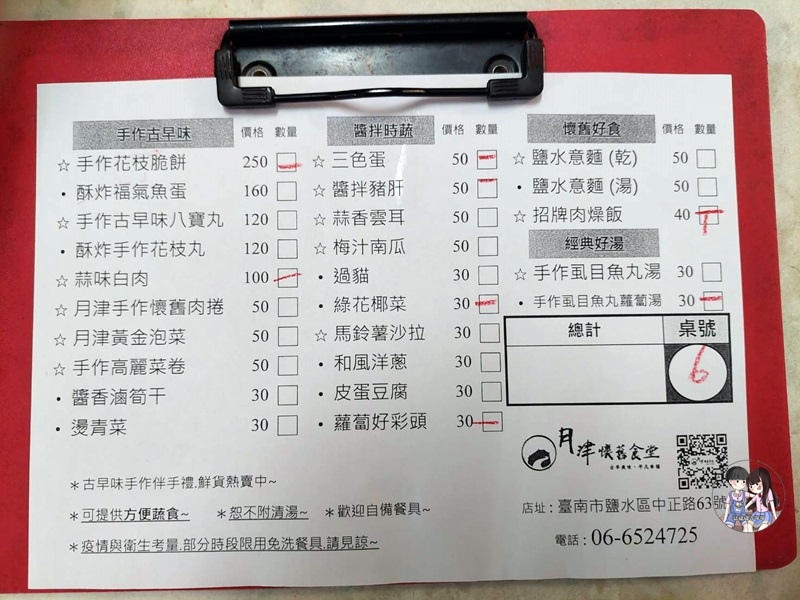 手作古早味 價格 數量
☆ 手作花枝脆餅 250
• 酥炸福氣魚蛋 160
☆ 手作古早味八寶丸 120
• 酥炸手作花枝丸 120
☆ 蒜味白肉 100
☆ 月津手作懷舊肉捲 50
☆ 月津黃金泡菜 50
☆ 手作高麗菜卷 50
• 醬香滷筍干 30
• 燙青菜 30
醬拌時蔬 價格 數量
☆ 三色蛋 50
☆ 醬拌豬肝 50
☆ 蒜香雲耳 50
☆ 梅汁南瓜 50
• 過貓 30
• 綠花椰菜 30
☆ 馬鈴薯沙拉 30
• 和風洋蔥 30
• 皮蛋豆腐 30
• 蘿蔔好彩頭 30
懷舊好食 價格 數量
☆ 鹽水意麵 (乾) 50
• 鹽水意麵 (湯) 50
☆ 招牌肉燥飯 40
經典好湯
☆ 手作虱目魚丸湯 30
• 手作虱目魚丸蘿蔔湯 30
總計 桌號
6
月津懷舊食堂
古早美味·平凡幸福
店址：臺南市鹽水區中正路63號
電話：06-6524725
＊古早味手作伴手禮,鮮貨熱賣中~
＊可提供方便蔬食~ ＊恕不附清湯~ ＊歡迎自備餐具~
＊疫情與衛生考量,部分時段限用免洗餐具,請見諒~